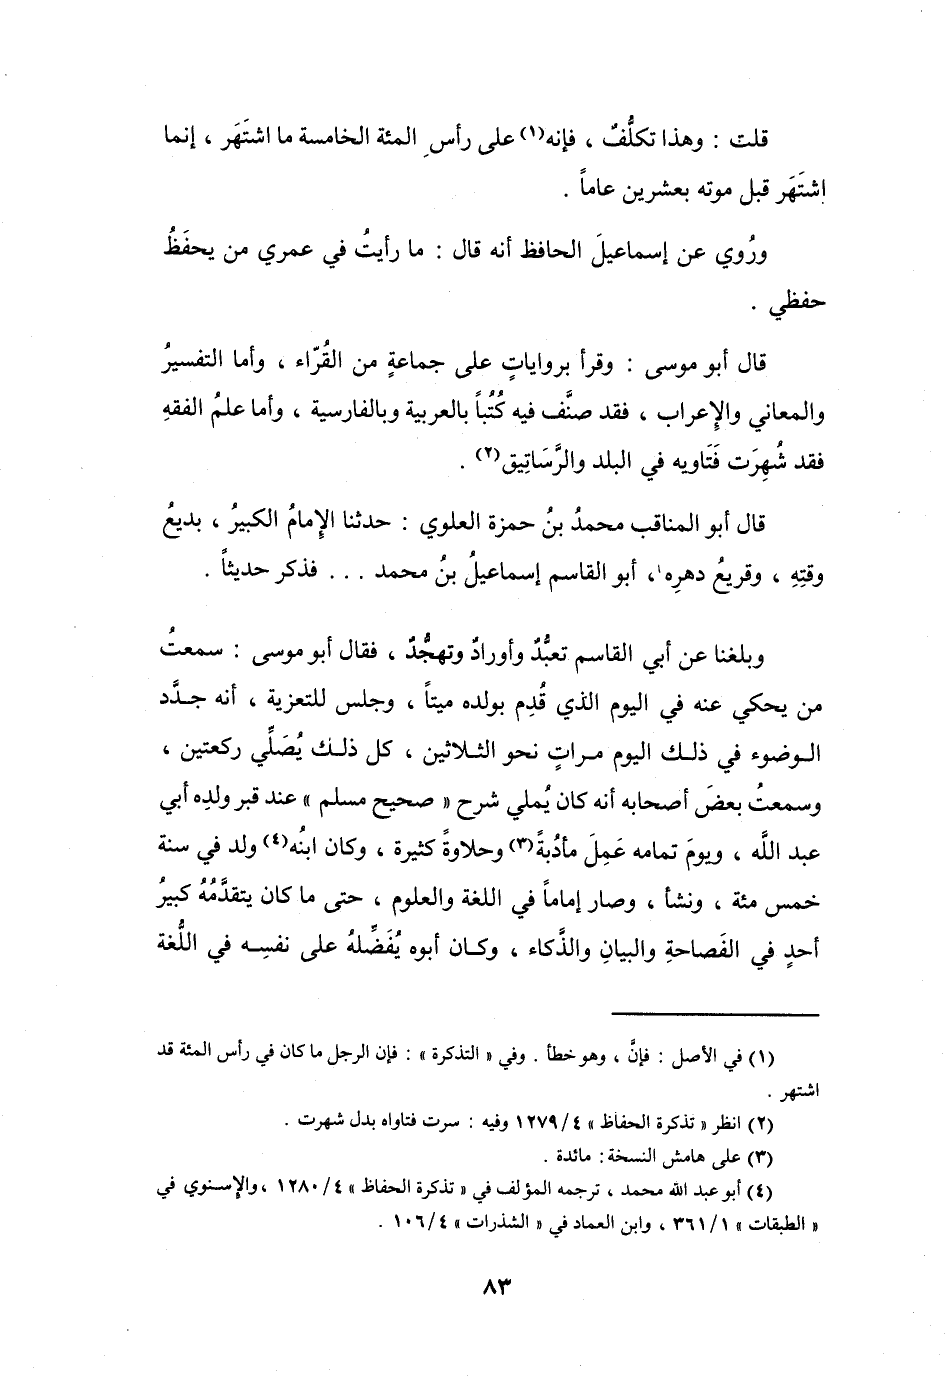 قلت : وهذا تكلُّفٌ ، فإنه(١) على رأسِ المئة الخامسة ما اشتَهَر ، إنما
اشتَهَر قبل موته بعشرين عاماً .
ورُوي عن إسماعيلَ الحافظ أنه قال : ما رأيتُ في عمري من يحفَظُ
حفظي .
قال أبو موسى : وقرأ برواياتٍ على جماعةٍ من القُرّاء ، وأما التفسيرُ
والمعاني والإِعراب ، فقد صنَّف فيه كُتُباً بالعربية وبالفارسية ، وأما علمُ الفقهِ
فقد شُهِرَت فَتَاويه في البلد والرَّسَاتِيق(٢) .
قال أبو المناقب محمدُ بنُ حمزة العلوي : حدثنا الإِمامُ الكبيرُ ، بديعُ
وقتِهِ ، وقريعُ دهرِه ، أبو القاسم إسماعيلُ بنُ محمد . . . فذكر حديثاً .
وبلغنا عن أبي القاسم تعبُّدٌ وأورادٌ وتهجُّدٌ ، فقال أبو موسى : سمعتُ
من يحكي عنه في اليوم الذي قُدِم بولده ميتاً ، وجلس للتعزية ، أنه جدَّد
الوضوء في ذلك اليوم مراتٍ نحو الثلاثين ، كل ذلك يُصَلِّي ركعتين ،
وسمعتُ بعضَ أصحابه أنه كان يُملي شرح « صحيح مسلم » عند قبر ولدِه أبي
عبد اللَّه ، ويومَ تمامه عَمِلَ مأدُبةً(٣) وحلاوةً كثيرة ، وكان ابنُه(٤) ولد في سنة
خمس مئة ، ونشأ ، وصار إماماً في اللغة والعلوم ، حتى ما كان يتقدَّمُهُ كبيرُ
أحدٍ في الفَصاحةِ والبيانِ والذَّكاء ، وكان أبوه يُفَضِّلهُ على نفسِه في اللُّغة
(١) في الأصل : فإنَّ ، وهو خطأ . وفي « التذكرة » : فإن الرجل ما كان في رأس المئة قد
اشتهر .
(٢) انظر « تذكرة الحفاظ » ٤/ ١٢٧٩ وفيه : سرت فتاواه بدل شهرت .
(٣) على هامش النسخة : مائدة .
(٤) أبو عبد الله محمد ، ترجمه المؤلف في « تذكرة الحفاظ » ٤/ ١٢٨٠ ، والإسنوي في
« الطبقات » ١/ ٣٦١ ، وابن العماد في « الشذرات » ٤/ ١٠٦ .
٨٣